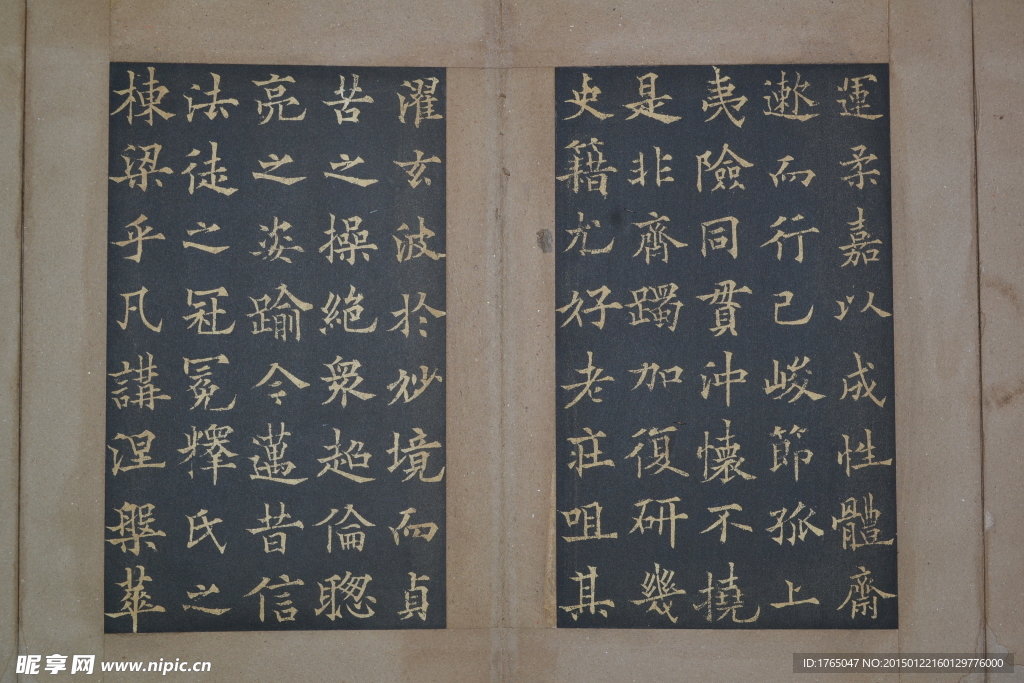 運柔嘉以成性體齋
遬而行己峻節孤上
夷險同貫沖懷不撓
是非齊躅加復研幾
史籍尤好老莊咀其
濯玄波於妙境而貞
苦之操絕衆超倫聰
亮之姿踰今邁昔信
法徒之冠冕釋氏之
棟梁乎凡講涅槃華
昵享网 www.nipic.cn
ID:1765047 NO:20150122160129776000